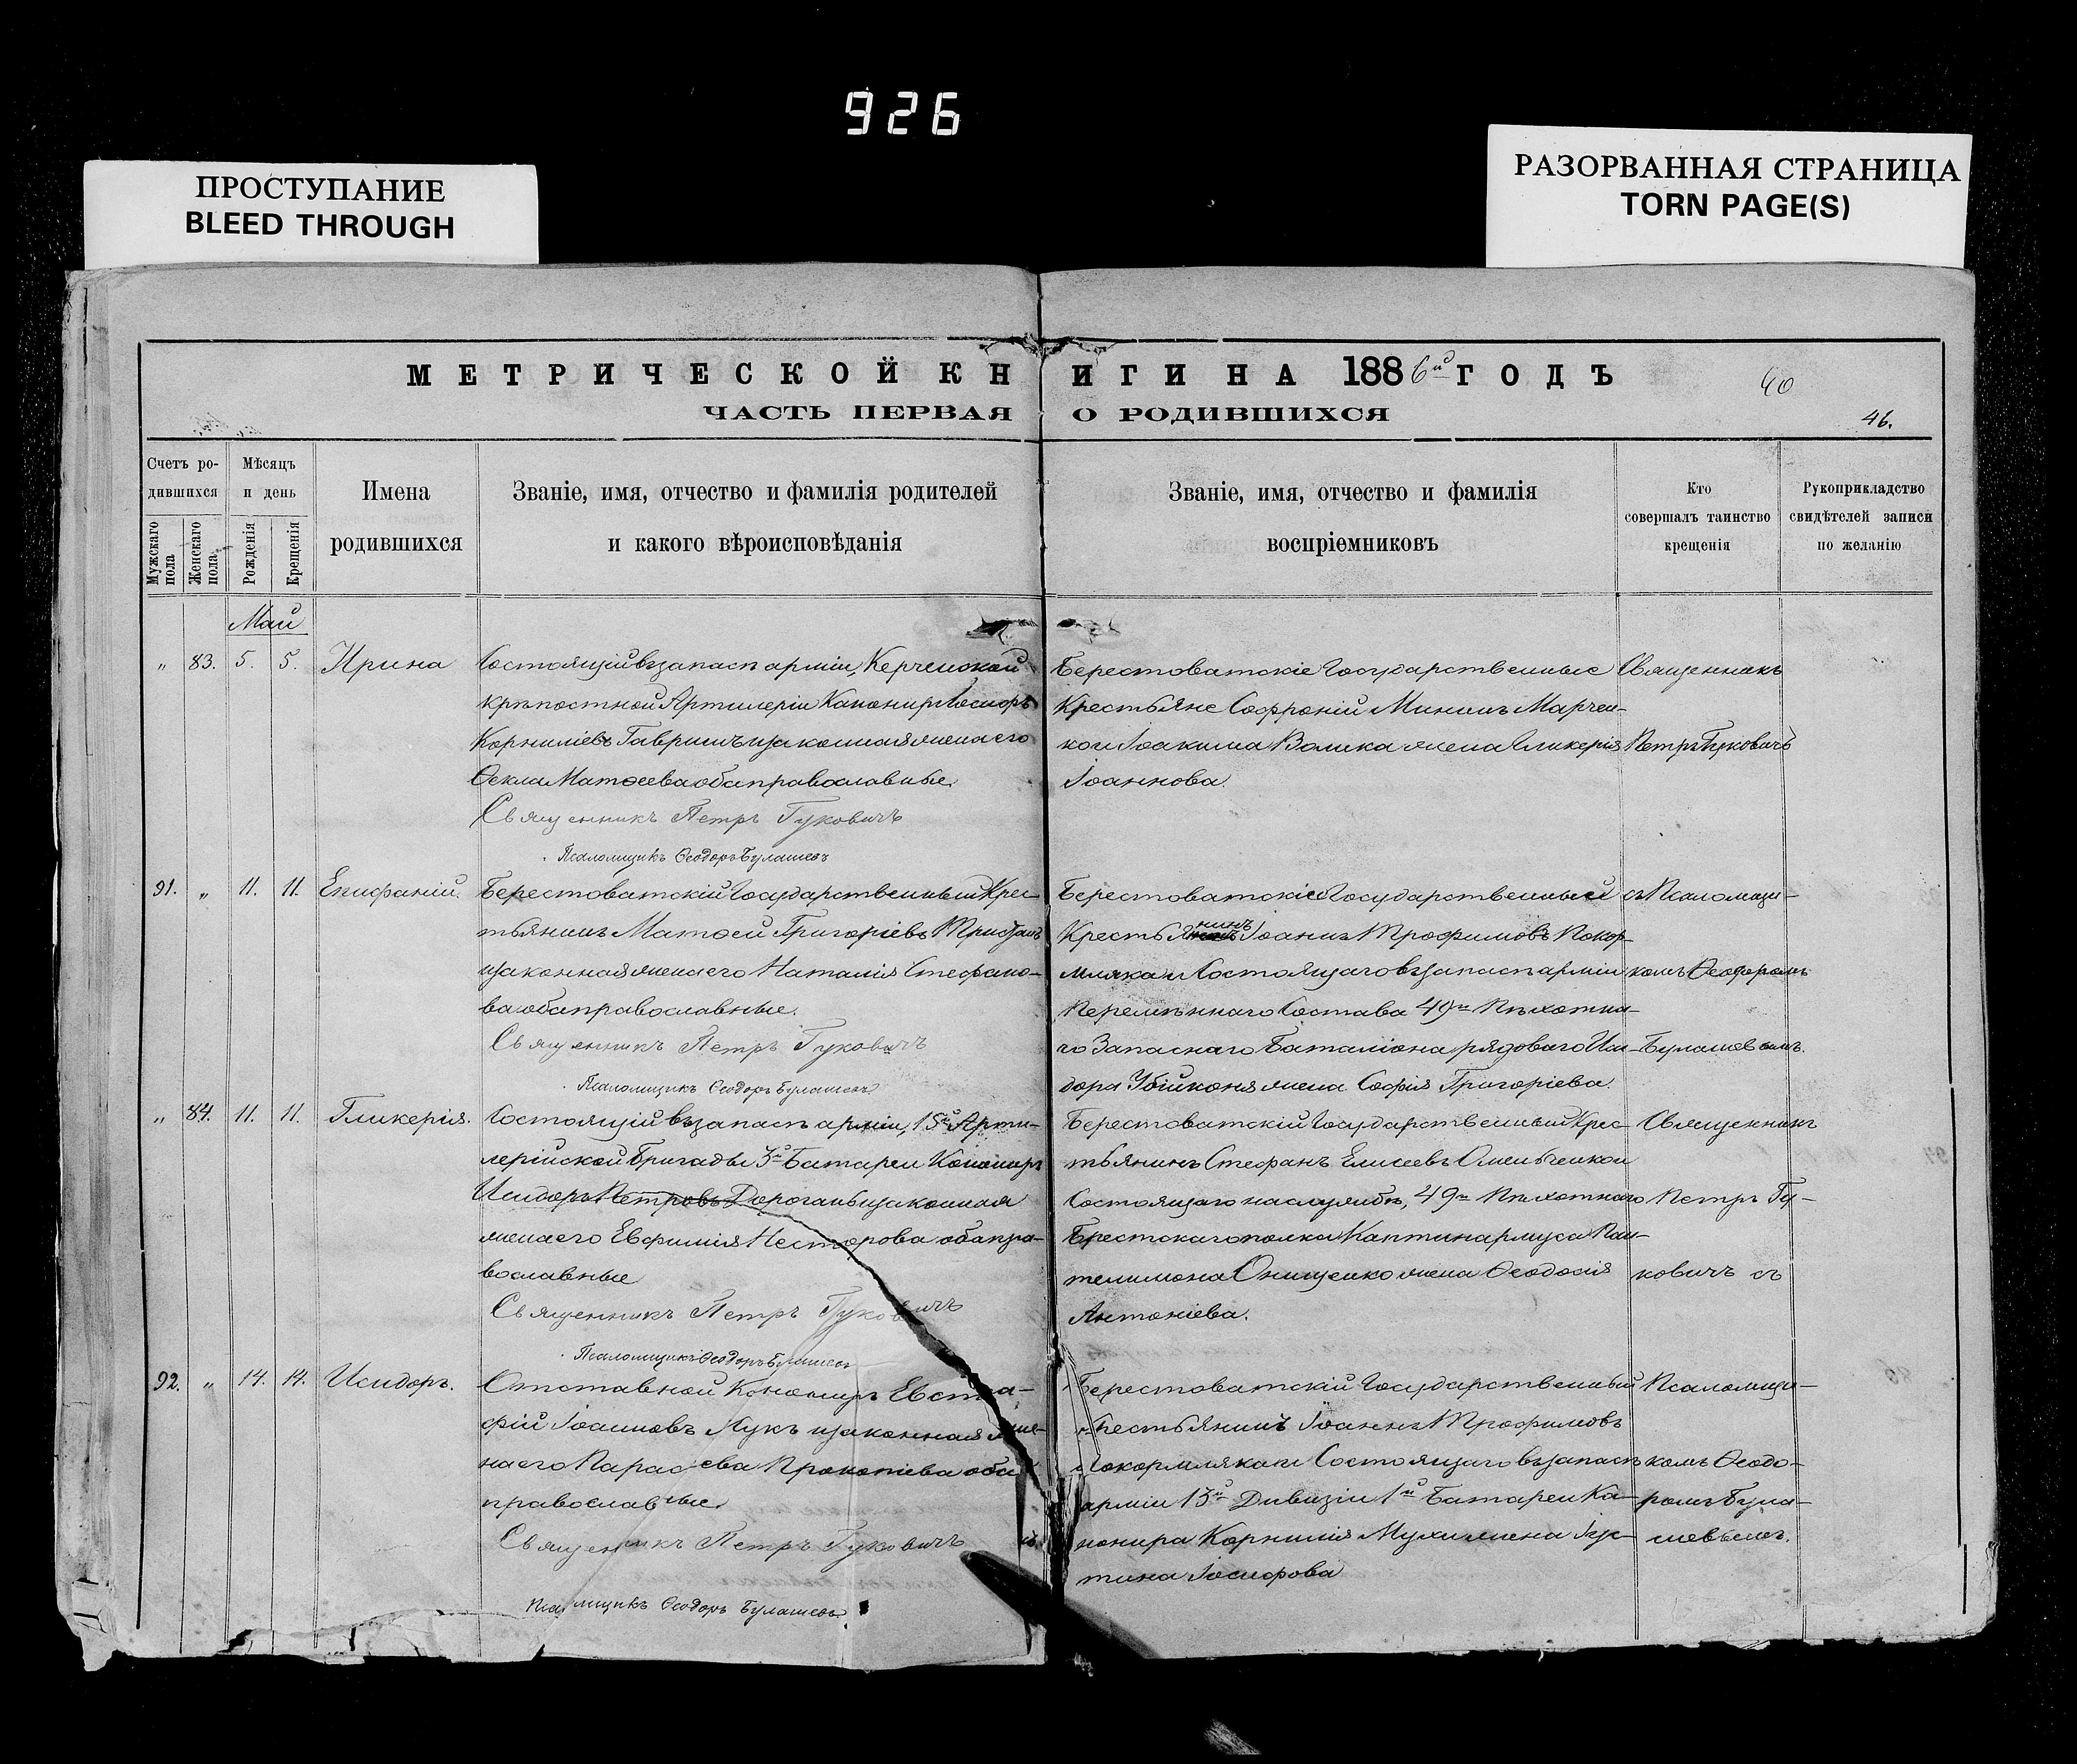 926
ПРОСТУПАНИЕ
BLEED THROUGH
РАЗОРВАННАЯ СТРАНИЦА
TORN PAGE(S)
МЕТРИЧЕСКОЙ КНИГИ НА 1886й ГОДЪ
40
ЧАСТЬ ПЕРВАЯ О РОДИВШИХСЯ
46.
Счетъ ро-
дившихся
Мужскаго пола
Женскаго пола
Мѣсяцъ
и день
Рожденія
Крещенія
Имена
родившихся
Званіе, имя, отчество и фамилія родителей
и какого вѣроисповѣданія
Званіе, имя, отчество и фамилія
воспріемниковъ
Кто
совершалъ таинство
крещенія
Рукоприкладство
свидѣтелей записи
по желанію
Май
" 83. 5. 5. Ирина
Состоящій въ запасѣ арміи, Керченской
крѣпостной Артилеріи Канониръ Іосифъ
Корниліевъ Гавришъ и законная жена его
Ѳекла Матѳеева оба православные.
Священникъ Петръ Гуковичъ
Псаломщикъ Ѳеодоръ Булашевъ
Берестоватскіе Государственные
Крестьяне Софроній Мининъ Марчен-
ко и Іоакима Волика жена Гликерія
Іоаннова.
Священникъ
Петръ Гуковичъ
91. " 11. 11. Епифаній.
Берестоватскій Государственный Крес-
тьянинъ Матѳей Григоріевъ
и законная жена его Наталія Стефано-
ва оба православные.
Священникъ Петръ Гуковичъ
Псаломщикъ Ѳеодоръ Булашевъ
Берестоватскій Государственный
Крестьянинъ Іоаннъ Трофимовъ Покор-
мляка и Состоящаго въ запасѣ арміи
Перемѣннаго Состава 49го Пѣхотна-
го Запаснаго Баталіона рядоваго Иси-
дора Убійконя жена Софія Григоріева.
съ Псаломщи-
комъ Ѳеодоромъ
Булашевымъ.
" 84. 11. 11. Гликерія.
Состоящій въ запасѣ арміи, 15й Арти-
лерійской Бригады 3й Батареи Канониръ
Исидоръ Петровъ Дорогань и законная
жена его Евфимія Несторова оба пра-
вославные
Священникъ Петръ Гуковичъ
Псаломщикъ Ѳеодоръ Булашевъ
Берестоватскій Государственный Крес-
тьянинъ Стефанъ Елисеевъ Омельченко и
Состоящаго на службѣ, 49го Пѣхотнаго
Брестскаго полка Каптинармуса Пан-
телимона Онищенко жена Ѳеодосія
Антоніева.
Священникъ
Петръ Гу-
ковичъ съ
92. " 14. 14. Исидоръ.
Отставной Канониръ Евста-
фій Іоанновъ Жукъ и законная же-
на его Параскева Прокопіева оба
православные.
Священникъ Петръ Гуковичъ
Псаломщикъ Ѳеодоръ Булашевъ.
Берестоватскій Государственный
Крестьянинъ Іоаннъ Трофимовъ
Покормляка и Состоящаго въ запасѣ
арміи 13й Дивизіи 1й Батареи Ка-
нонира Корнилія Мухи жена Іус-
тина Іосифова
Псаломщи-
комъ Ѳеодо-
ромъ Була-
шевымъ.